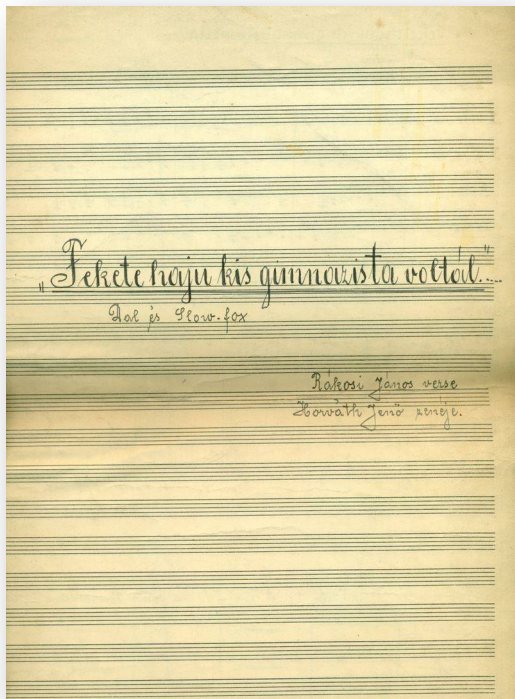 „Fekete haju kis gimnazista voltál...."
Dal és Slow-fox
Rákosi János verse
Horváth Jenő zenéje.